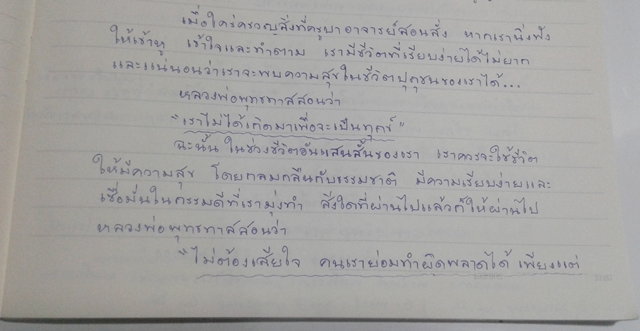 เมื่อใคร่ครวญสิ่งที่ครูบาอาจารย์สอนสั่ง หากเรานิ่งฟัง
ให้เข้าหู เข้าใจและทำตาม เรามีชีวิตที่เรียบง่ายได้ไม่ยาก
และแน่นอนว่าเราจะพบความสุขในชีวิตปุถุชนของเราได้...
หลวงพ่อพุทธทาสสอนว่า
"เราไม่ได้เกิดมาเพื่อจะเป็นทุกข์"
ฉะนั้น ในช่วงชีวิตอันแสนสั้นของเรา เราควรจะใช้ชีวิต
ให้มีความสุข โดยกลมกลืนกับธรรมชาติ มีความเรียบง่ายและ
เชื่อมั่นในกรรมดีที่เรามุ่งทำ สิ่งใดที่ผ่านไปแล้วก็ให้ผ่านไป
หลวงพ่อพุทธทาสสอนว่า
"ไม่ต้องเสียใจ คนเราย่อมทำผิดพลาดได้ เพียงแต่